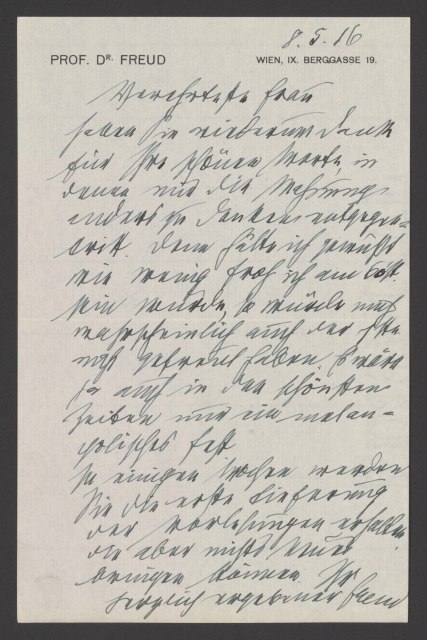 8.5.16
PROF. DR. FREUD
WIEN, IX. BERGGASSE 19.
Verehrteste Frau
haben Sie wiederum Dank
für Ihre schönen Worte in
denen mir die Mahnung
anders zu denken entgegen-
tritt. Denn hätte ich gewußt
wie wenig froh ich am 60st.
sein würde, so würde mich
wahrscheinlich auch der 1ste
nicht gefreut haben. Es wäre
ja auch in den schönsten
Zeiten nur ein melan-
cholisches Fest
In einigen Wochen werden
Sie die erste Lieferung
der Vorlesungen erhalten,
die aber nichts Neues
bringen können. Ihr
herzlich ergebener Freud